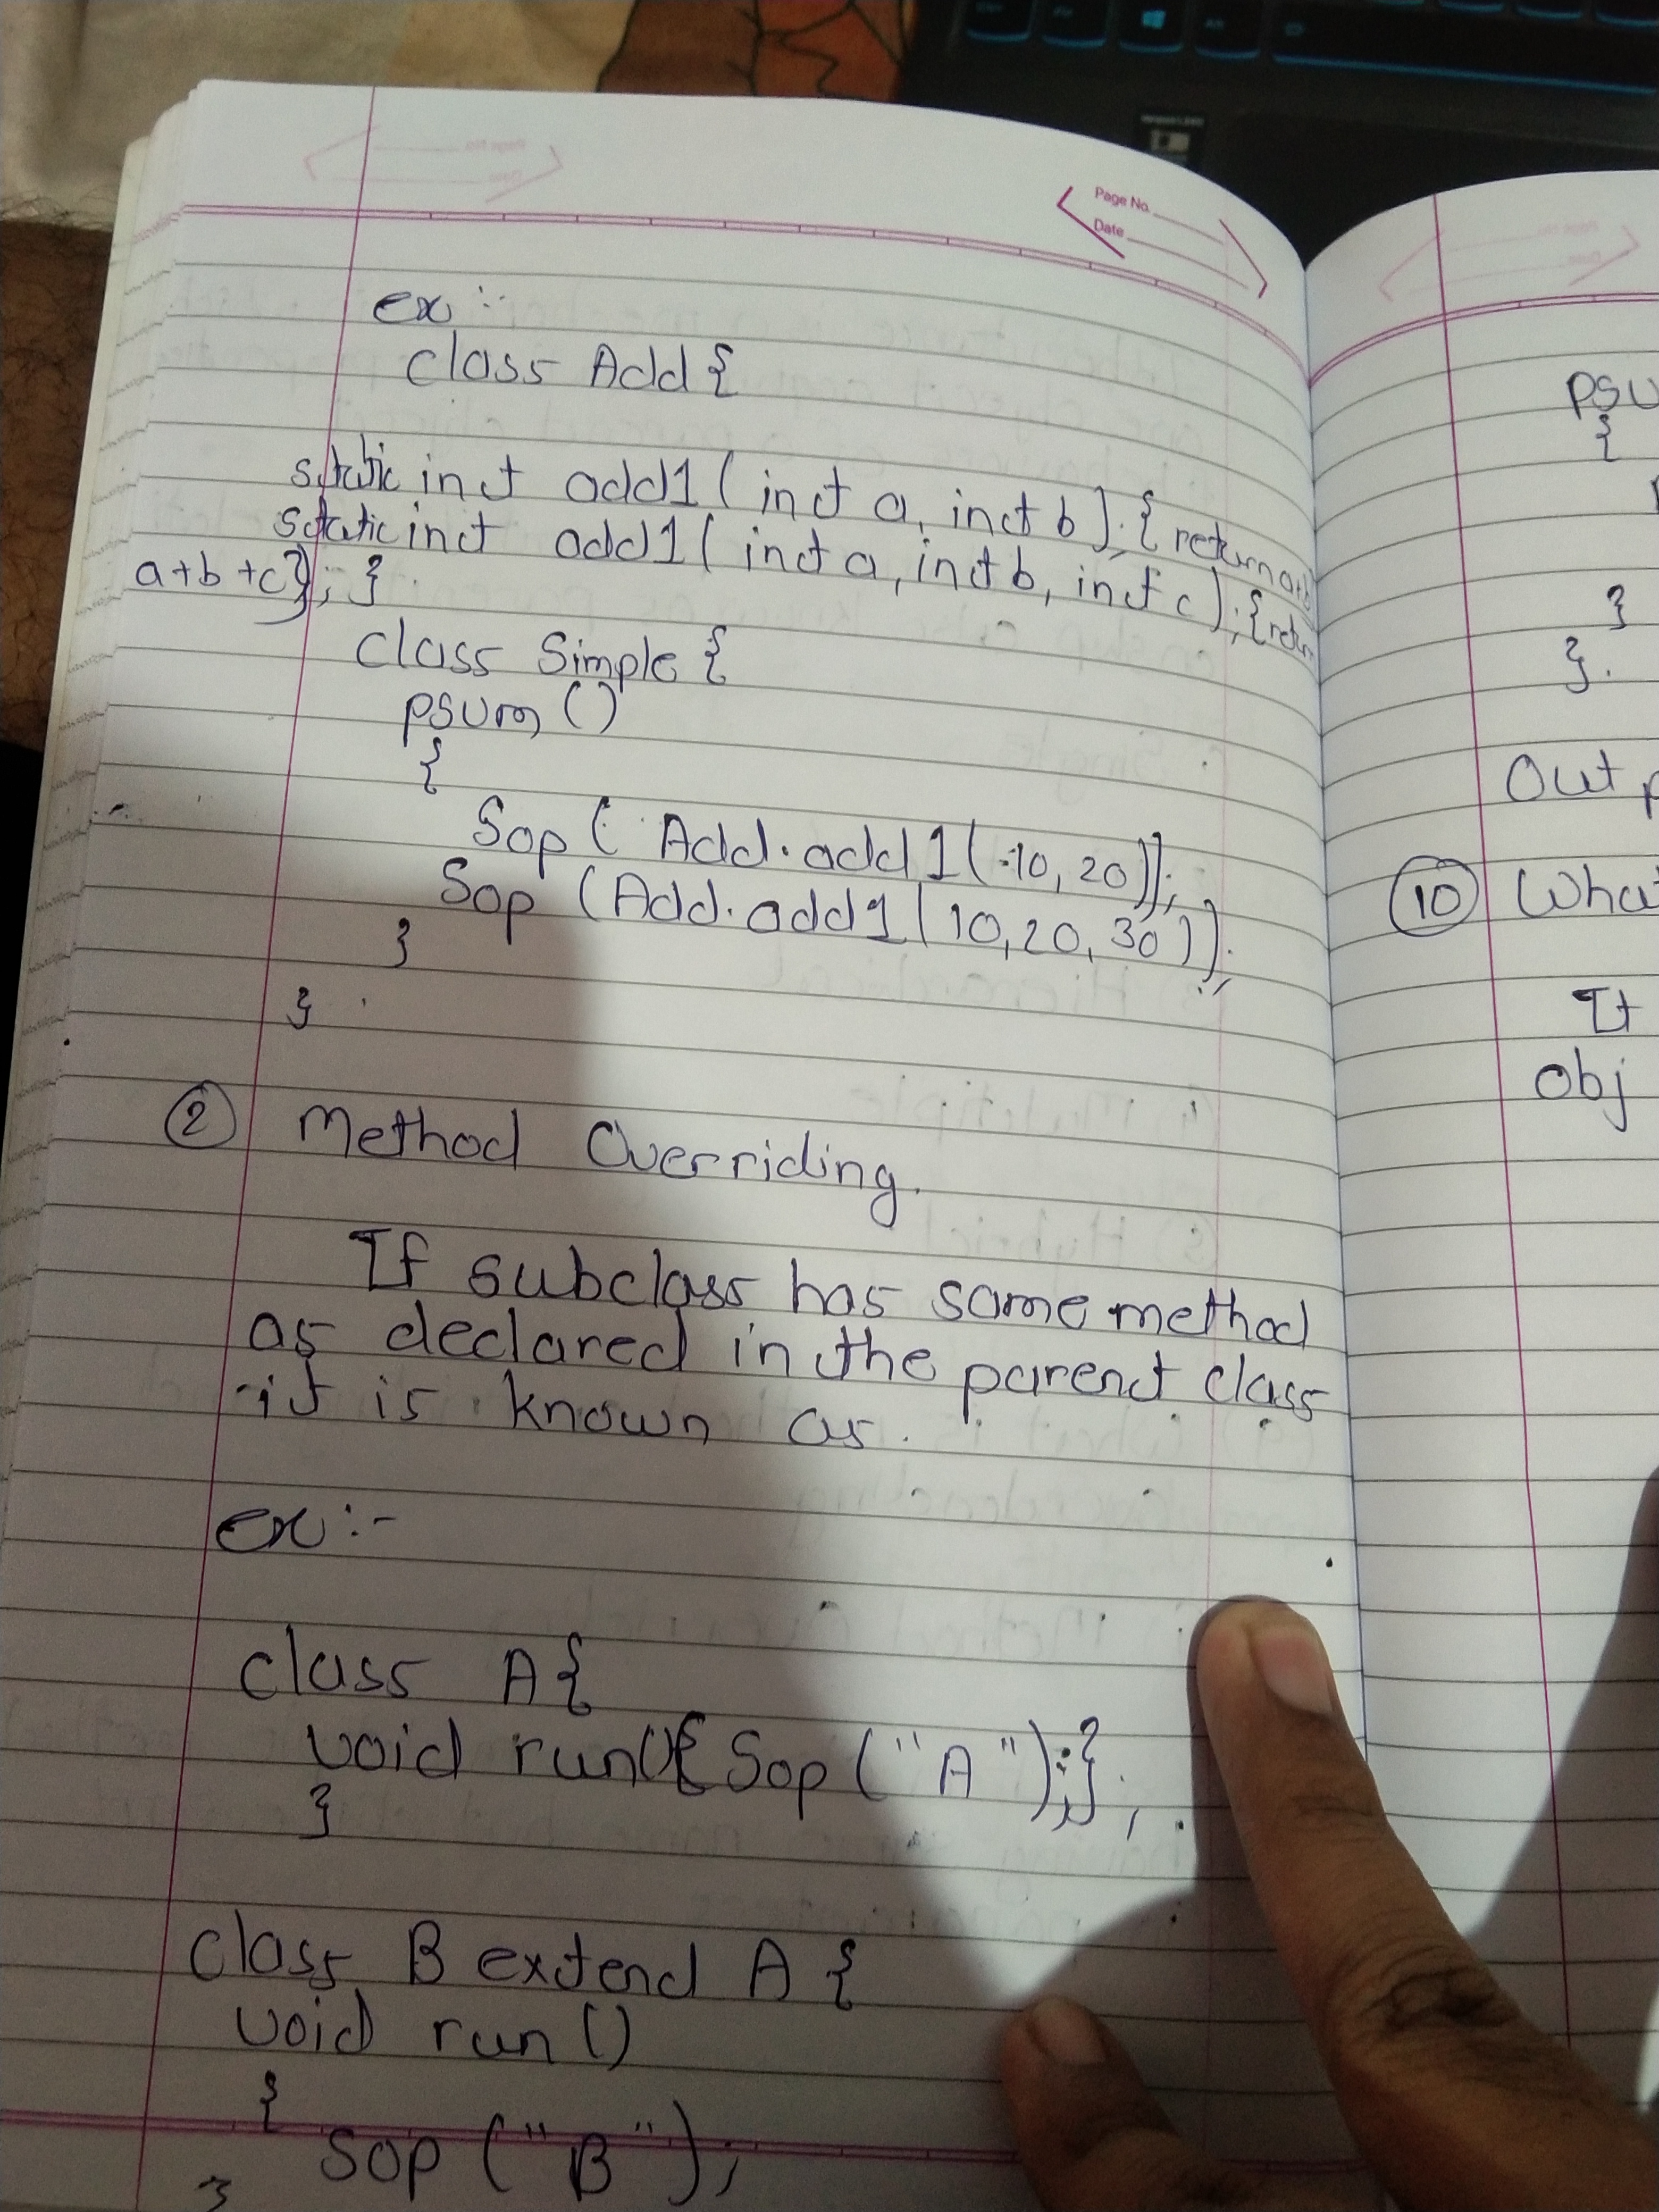 Page No.
Date
ex :-
class Add {
static int add1 ( int a, int b ); { return a+b
static int add1 ( int a, int b, int c ); { return
a+b+c); }
class Simple {
psvm ()
{
Sop ( Add.add1 (10, 20));
Sop (Add.add1 (10,20,30));
}
}
② Method Overriding.
If subclass has same method
as declared in the parent class
it is known as.
ex :-
class A {
void run(){ Sop ("A");};
}
class B extend A {
void run ()
{
Sop ("B");
}
{
}
}.
Out
⑩ What
It
Obj